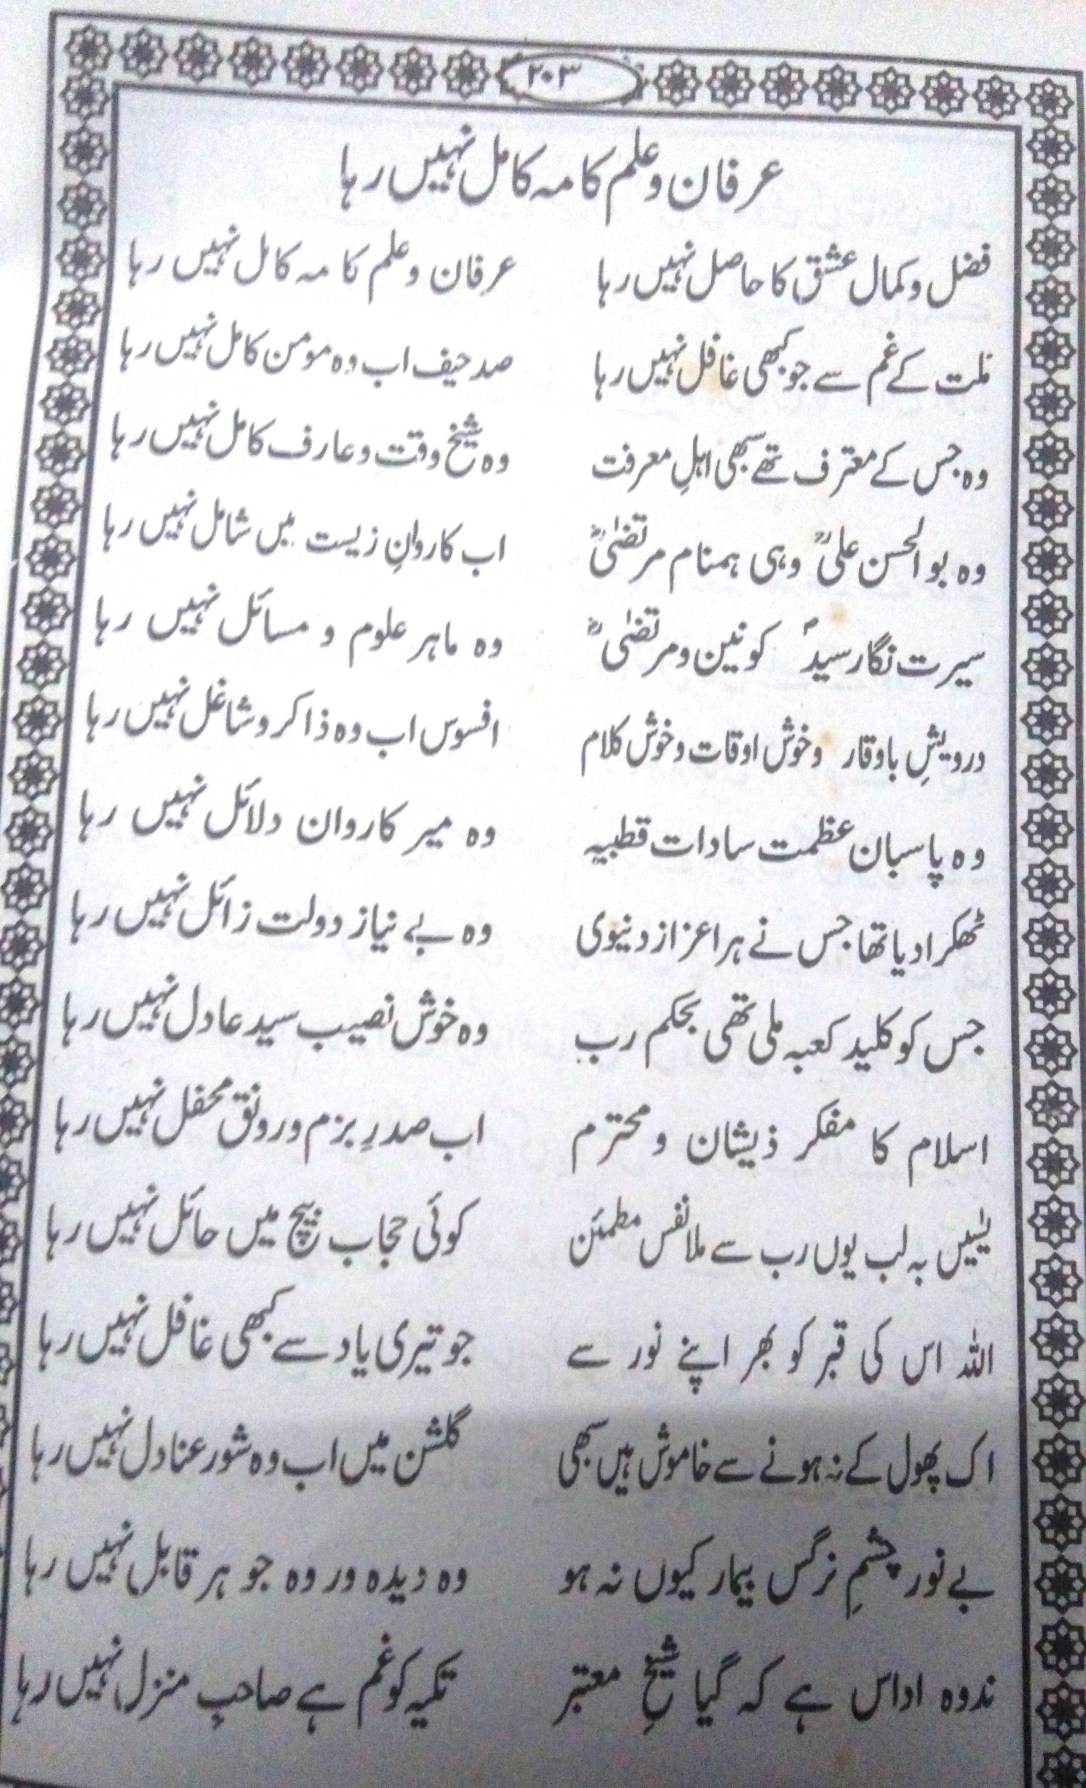 ۲۰۳
عرفان و علم کا مہ کامل نہیں رہا
فضل و کمال عشق کا حاصل نہیں رہا عرفان و علم کا مہ کامل نہیں رہا
ملت کے غم سے جو کبھی غافل نہیں رہا صد حیف اب وہ مومن کامل نہیں رہا
وہ جس کے معترف تھے سبھی اہلِ معرفت وہ شیخ وقت و عارف کامل نہیں رہا
وہ بوالحسن علیؒ وہی ہمنام مرتضیٰؓ اب کاروانِ زیست میں شامل نہیں رہا
سیرت نگار سیدؐ کونین و مرتضیٰؓ وہ ماہر علوم و مسائل نہیں رہا
درویشِ باوقار و خوش اوقات و خوش کلام افسوس اب وہ ذاکر و شاغل نہیں رہا
وہ پاسبان عظمت سادات قطبیہ وہ میر کاروان دلائل نہیں رہا
ٹھکرا دیا تھا جس نے ہر اعزاز دنیوی وہ بے نیاز دولت زائل نہیں رہا
جس کو کلید کعبہ ملی تھی بحکم رب وہ خوش نصیب سید عادل نہیں رہا
اسلام کا مفکر ذیشان و محترم اب صدرِ بزم و رونق محفل نہیں رہا
یٰسیں بہ لب یوں رب سے ملا نفس مطمئن کوئی حجاب بیچ میں حائل نہیں رہا
اللہ اس کی قبر کو بھر اپنے نور سے جو تیری یاد سے کبھی غافل نہیں رہا
اک پھول کے نہ ہونے سے خاموش ہیں سبھی گلشن میں اب وہ شور عنادل نہیں رہا
بے نور چشمِ نرگس بیمار کیوں نہ ہو وہ دیدہ ور وہ جو ہر قابل نہیں رہا
ندوہ اداس ہے کہ گیا شیخِ معتبر تکیہ کو غم ہے صاحبِ منزل نہیں رہا